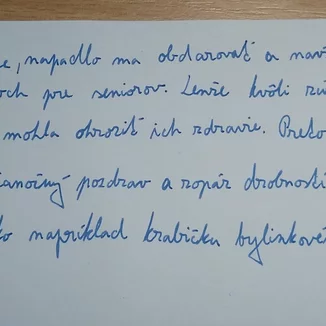 e, napadlo ma obdarovať a nav
och pre seniorov. Lenže kvôli
mohla ohroziť ich zdravie. Preto
ianočný pozdrav a zopár drobností
ko napríklad krabičku bylinkové